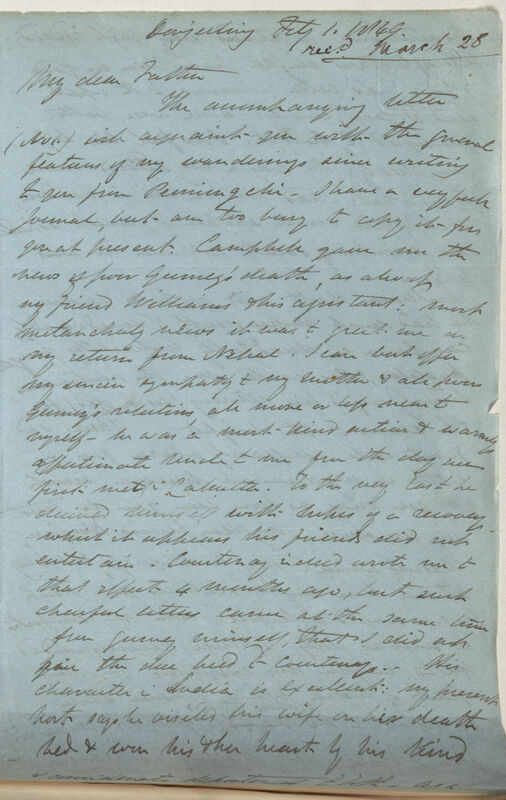 Darjeeling Feby 1. 1849.
recd. March 28
My dear Father
The accompanying letter
will acquaint you with the general
features of my wanderings since writing
to you from - I have a very full
Journal, but am too busy to copy it for
you at present. Campbell gave me the
news of poor Gurney's death, as also of
my friend Williams & his assistant: most
melancholy news it was to greet me on
my return from Nepal. I can but offer
my sincere sympathy to my Mother & all poor
Gurney's relations, all more or less near to
myself - he was a most kind active & warmly
affectionate uncle to me from the day we
first met in Calcutta. To the very last he
deceived himself with hopes of a recovery
which it appears his friends did not
entertain. Courtenay indeed wrote me to
that effect 4 months ago, but such
cheerful letters came at the same time
from Gurney himself, that I did not
give the due heed to Courtenay's. - His
character in India is excellent: my present
host says he visited his wife on her death
bed & won his & her heart by his kind
&